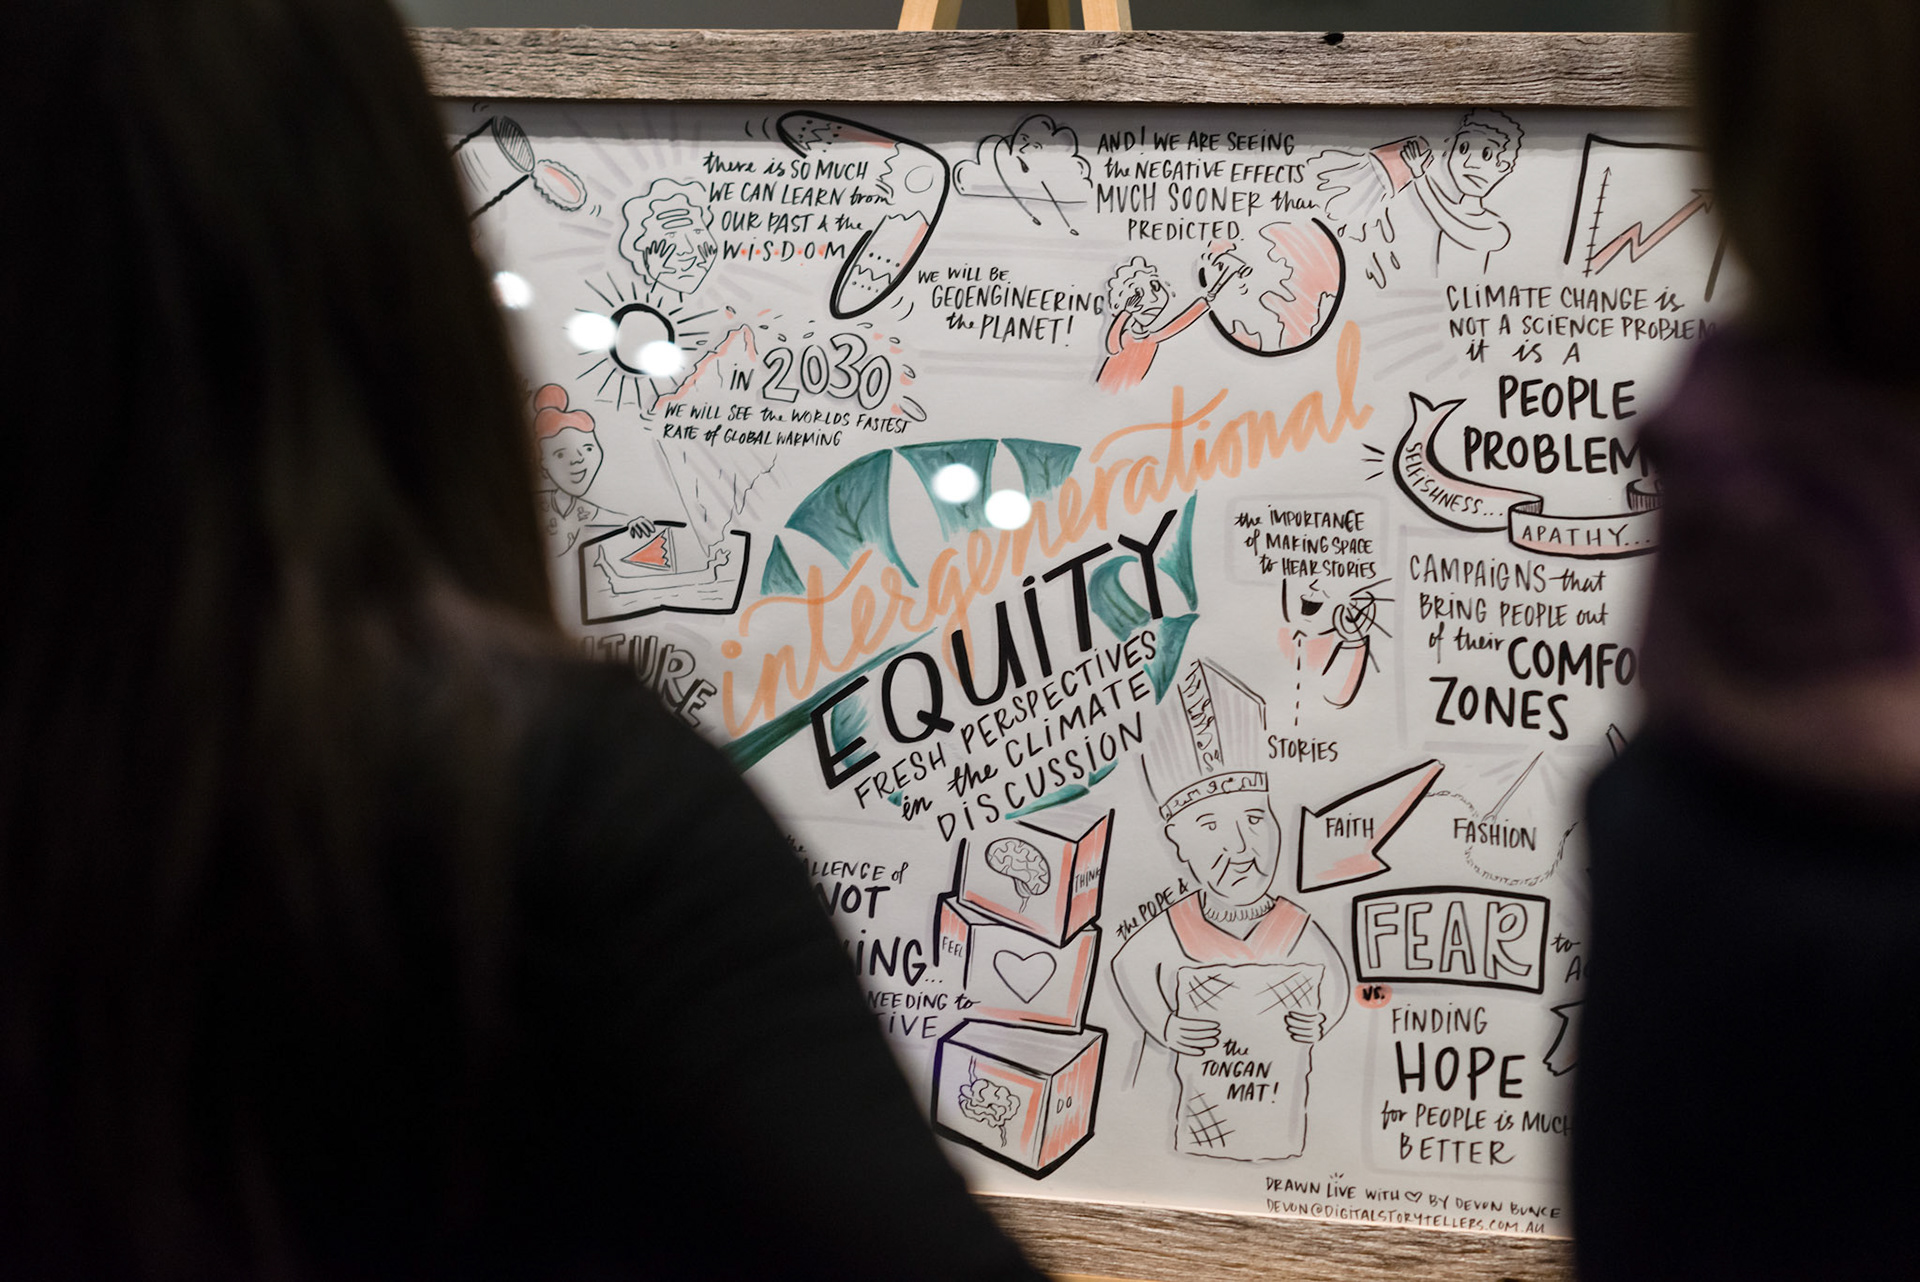 there is SO MUCH
WE CAN LEARN from
OUR PAST & the
W·I·S·D·O·M
AND! WE ARE SEEING
the NEGATIVE EFFECTS
MUCH SOONER than
PREDICTED.
WE WILL BE
GEOENGINEERING
the PLANET!
CLIMATE CHANGE is
NOT A SCIENCE PROBLEM
it is A
PEOPLE
PROBLEM
SELFISHNESS...
APATHY...
IN 2030
WE WILL SEE the WORLDS FASTEST
RATE of GLOBAL WARMING
intergenerational
EQUITY
FRESH PERSPECTIVES
in the CLIMATE
DISCUSSION
the IMPORTANCE
of MAKING SPACE
to HEAR STORIES
STORIES
CAMPAIGNS that
BRING PEOPLE out
of their COMFO
ZONES
TURE
LLENGE of
NOT
ING...
NEEDING to
IVE
THINK
FEEL
DO
the POPE &
the
TONGAN
MAT!
FAITH
FASHION
FEAR
to
vs.
FINDING
HOPE
for PEOPLE is MUCH
BETTER
DRAWN LIVE WITH ♡ BY DEVON BUNCE
DEVON@DIGITALSTORYTELLERS.COM.AU